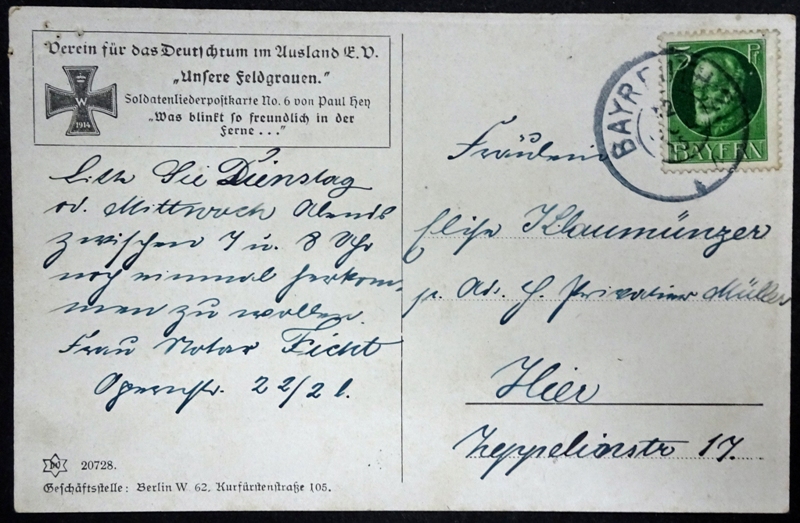 Verein für das Deutschtum im Ausland E.V.
„Unsere Feldgrauen."
Soldatenliederpostkarte No. 6 von Paul Hey
„Was blinkt so freundlich in der
Ferne ..."
W
1914
Bitte Sie Dienstag
od. Mittwoch Abends
zwischen 7 u. 8 Uhr
noch einmal herkom-
men zu wollen.
Frau Notar Ficht
Opernstr. 22/2 l.
20728.
Geschäftsstelle: Berlin W 62, Kurfürstenstraße 105.
5 Pf
BAYERN
BAYR
Fräulein
Elise Klaumünzer
p. Ad. H. Privatier Müller
Hier
Zeppelinstr 17.